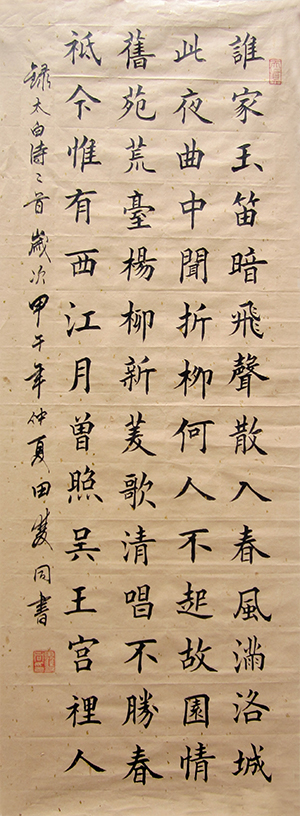 誰家玉笛暗飛聲散入春風滿洛城
此夜曲中聞折柳何人不起故園情
舊苑荒臺楊柳新菱歌清唱不勝春
祇今惟有西江月曾照吳王宮裡人
錄太白詩二首歲次甲午年仲夏田雙同書